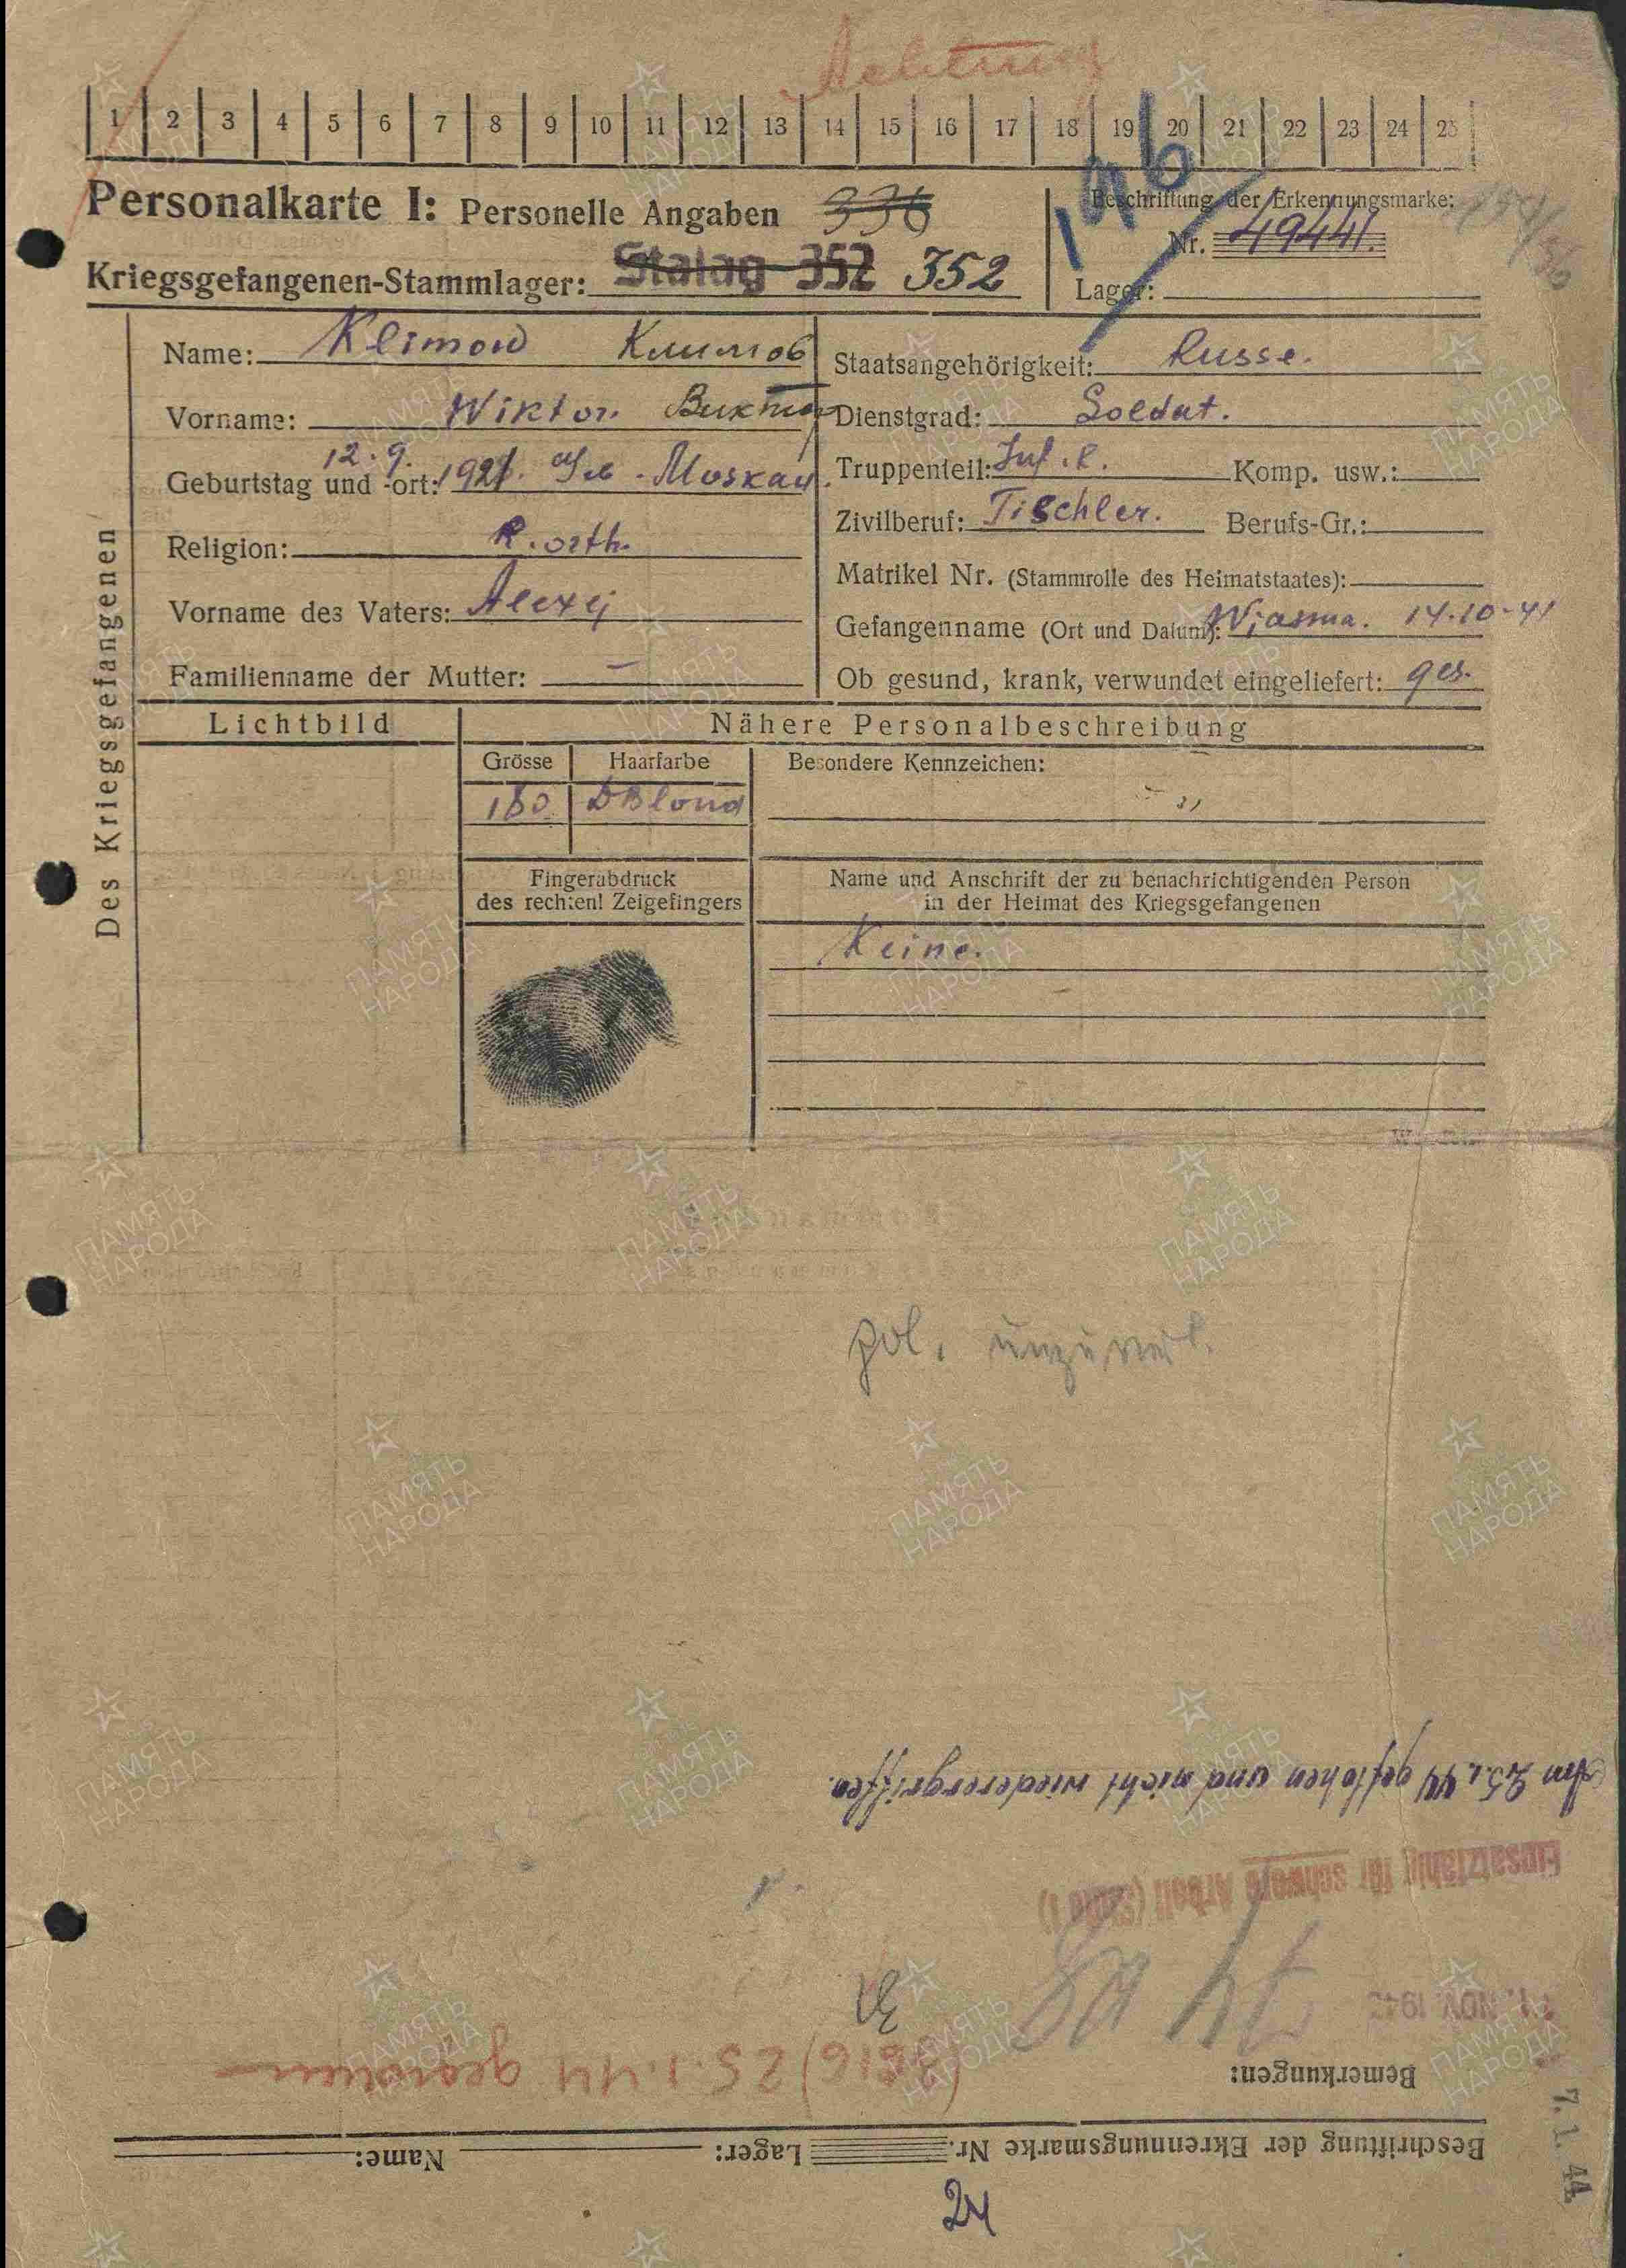 Achtung
1 2 3 4 5 6 7 8 9 10 11 12 13 14 15 16 17 18 19 20 21 22 23 24 25
Personalkarte I: Personelle Angaben 336
Beschriftung der Erkennungsmarke:
196
Nr. 49441.
Kriegsgefangenen-Stammlager: Stalag 352 352
Lager:
Des Kriegsgefangenen
Name: Klimow Климов
Staatsangehörigkeit: Russe.
Vorname: Wiktor. Виктор
Dienstgrad: Soldat.
12.9.
Geburtstag und -ort: 1921. Moskau.
Truppenteil: Inf. R. Komp. usw.:
Religion: R. orth.
Zivilberuf: Tischler. Berufs-Gr.:
Matrikel Nr. (Stammrolle des Heimatstaates):
Vorname des Vaters: Alexej
Gefangenname (Ort und Datum): Wjasma. 14.10-41
Familienname der Mutter: —
Ob gesund, krank, verwundet eingeliefert: ges.
Lichtbild
Nähere Personalbeschreibung
Grösse Haarfarbe Besondere Kennzeichen:
160. DBlond
Fingerabdruck
des rechten! Zeigefingers
Name und Anschrift der zu benachrichtigenden Person
in der Heimat des Kriegsgefangenen
Keine.
pol. unzuverl.
Am 25.1.44 geflohen und nicht wiederergriffen.
Einsatzfähig für schwere Arbeit (Stufe I)
NOV. 194
Bemerkungen:
25.1.44 geflohen
7. 1. 44
Beschriftung der Ekrennungsmarke Nr. Lager: Name:
24